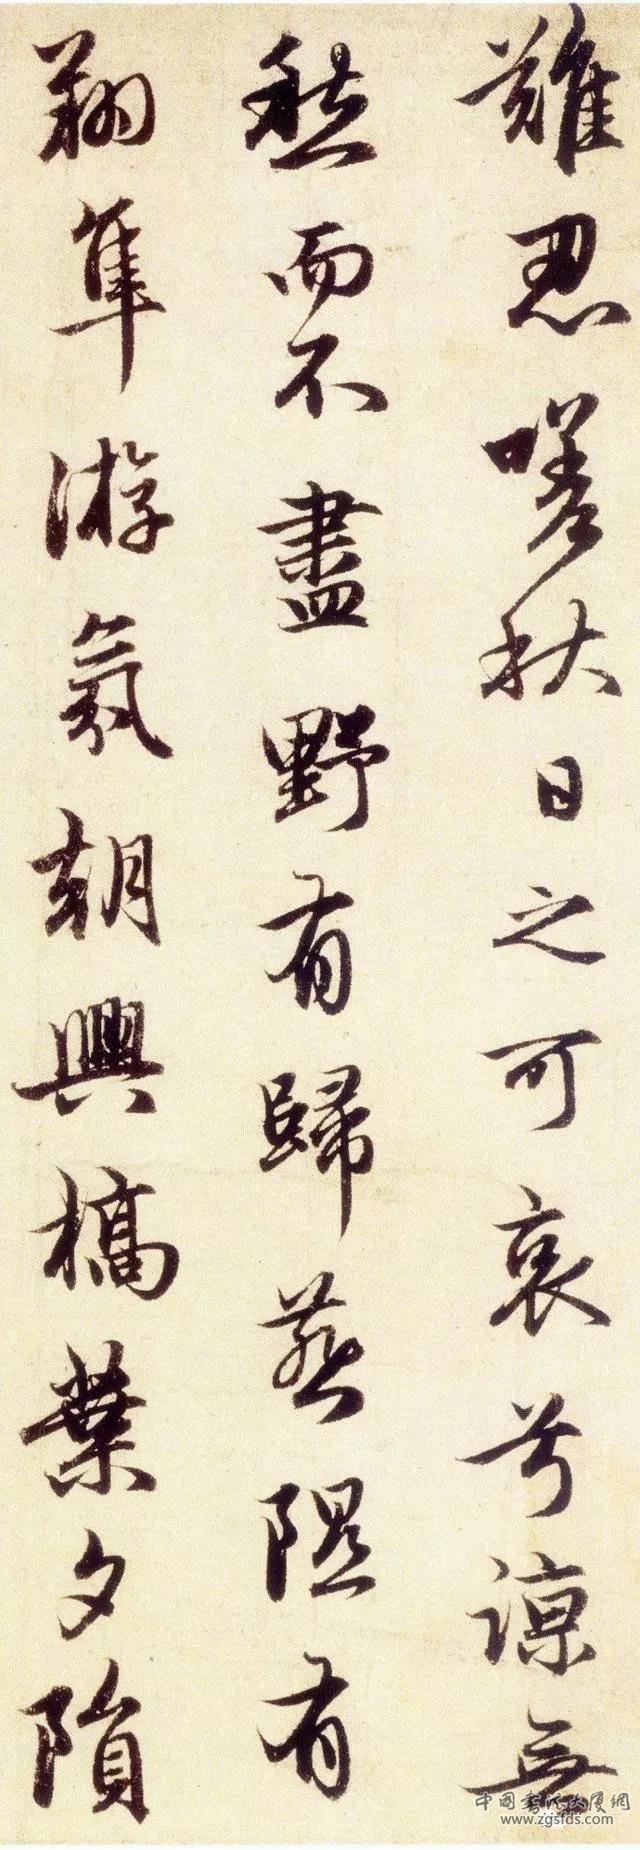 難忍嗟秋日之可哀兮諒無
愁而不盡野有歸燕隰有
翔隼游氛朝興槁葉夕隕
中國書法大廈網
www.zgsfds.com